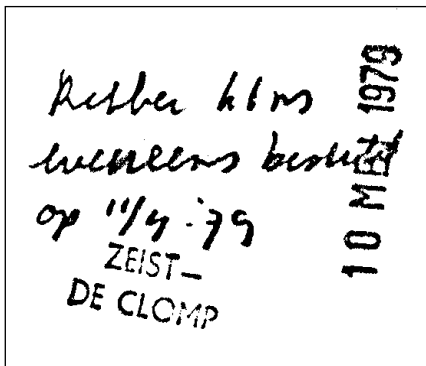 eveneens besteld
op 11/4 -79
ZEIST–
DE CLOMP
10 MEI 1979